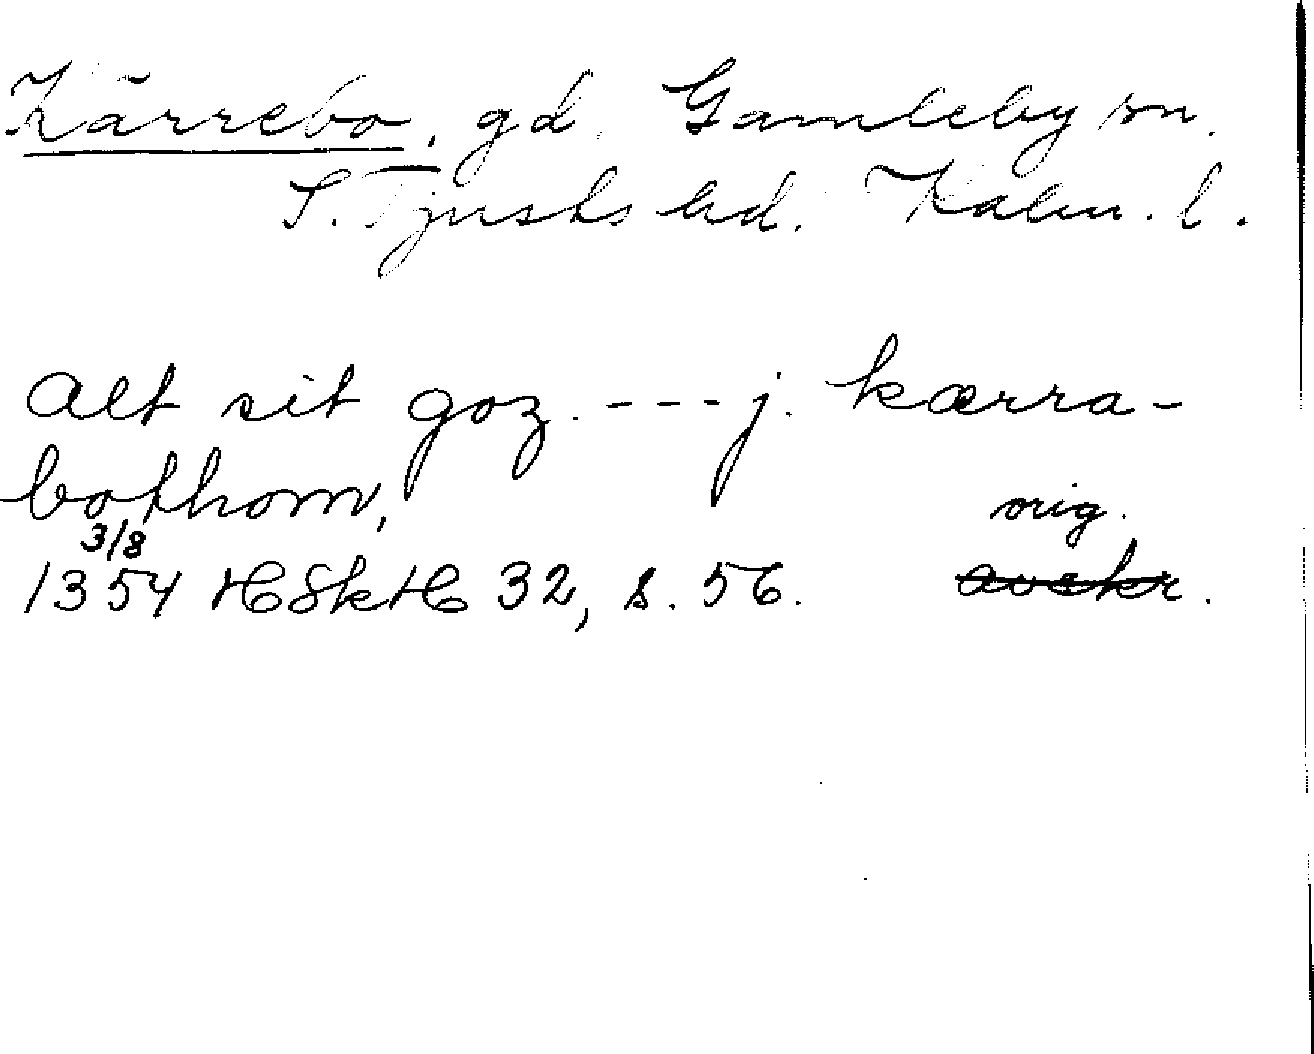 Kärrebo, gd. Gamleby sn.
S. Tjusts hd. Kalm. l.
alt sit goz. --- j. kærra-
bothom,
orig.
3/8
1354 HSkH 32, s. 56. avskr.